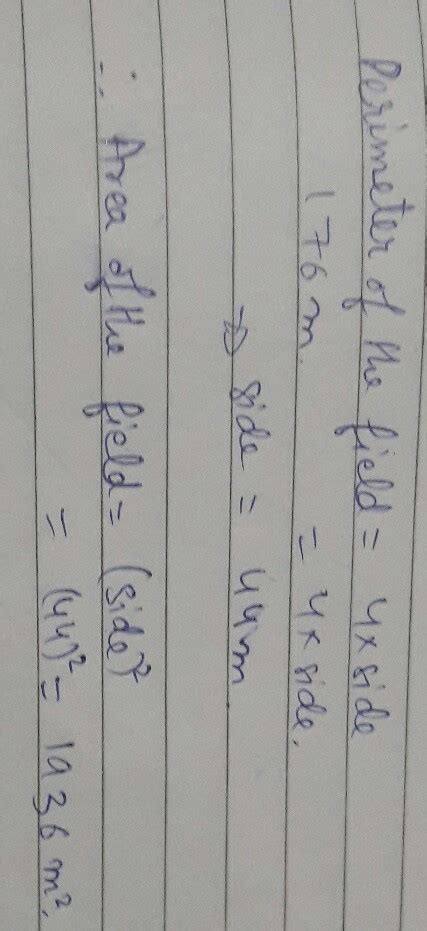 Perimeter of the field = 4 × side
176 m. = 4 × side.
⇒ side = 44 m
∴ Area of the field = (side)²
= (44)² = 1936 m².